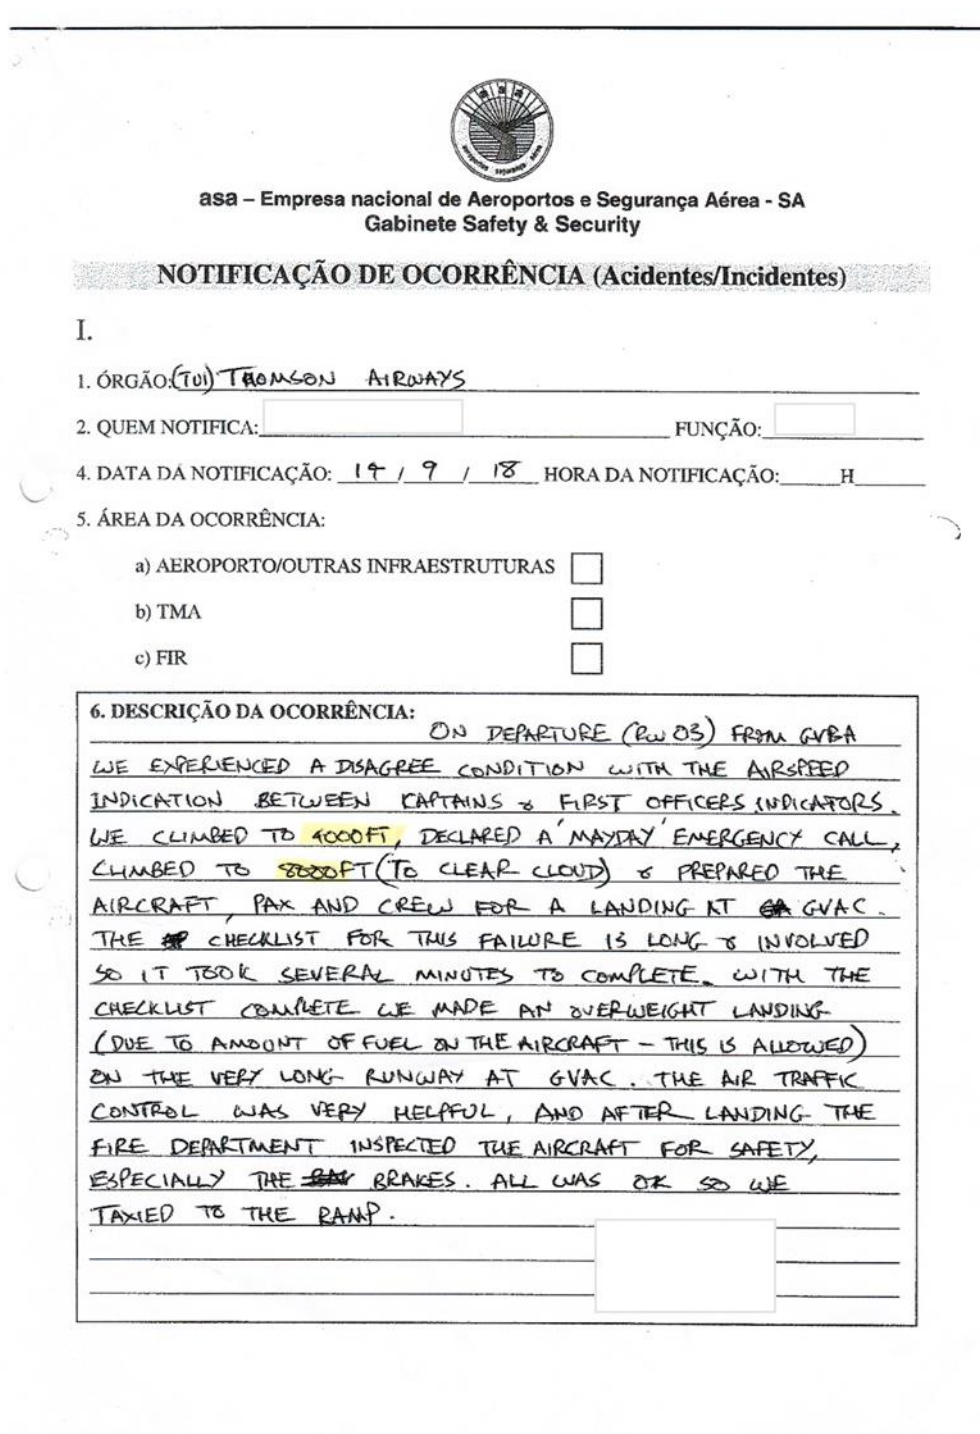 asa – Empresa nacional de Aeroportos e Segurança Aérea - SA
Gabinete Safety & Security
NOTIFICAÇÃO DE OCORRÊNCIA (Acidentes/Incidentes)
I.
1. ÓRGÃO: (TUI) THOMSON AIRWAYS
2. QUEM NOTIFICA: FUNÇÃO:
4. DATA DA NOTIFICAÇÃO: / 9 / 18 HORA DA NOTIFICAÇÃO: H
5. ÁREA DA OCORRÊNCIA:
a) AEROPORTO/OUTRAS INFRAESTRUTURAS
b) TMA
c) FIR
6. DESCRIÇÃO DA OCORRÊNCIA:
ON DEPARTURE (RW 03) FROM GVBA
WE EXPERIENCED A DISAGREE CONDITION WITH THE AIRSPEED
INDICATION BETWEEN CAPTAINS & FIRST OFFICERS INDICATORS.
WE CLIMBED TO 4000FT, DECLARED A 'MAYDAY' EMERGENCY CALL,
CLIMBED TO 8000FT (TO CLEAR CLOUD) & PREPARED THE
AIRCRAFT, PAX AND CREW FOR A LANDING AT GVAC.
THE CHECKLIST FOR THIS FAILURE IS LONG & INVOLVED
SO IT TOOK SEVERAL MINUTES TO COMPLETE. WITH THE
CHECKLIST COMPLETE WE MADE AN OVERWEIGHT LANDING
(DUE TO AMOUNT OF FUEL ON THE AIRCRAFT – THIS IS ALLOWED)
ON THE VERY LONG RUNWAY AT GVAC. THE AIR TRAFFIC
CONTROL WAS VERY HELPFUL, AND AFTER LANDING THE
FIRE DEPARTMENT INSPECTED THE AIRCRAFT FOR SAFETY,
ESPECIALLY THE BRAKES. ALL WAS OK SO WE
TAXIED TO THE RAMP.